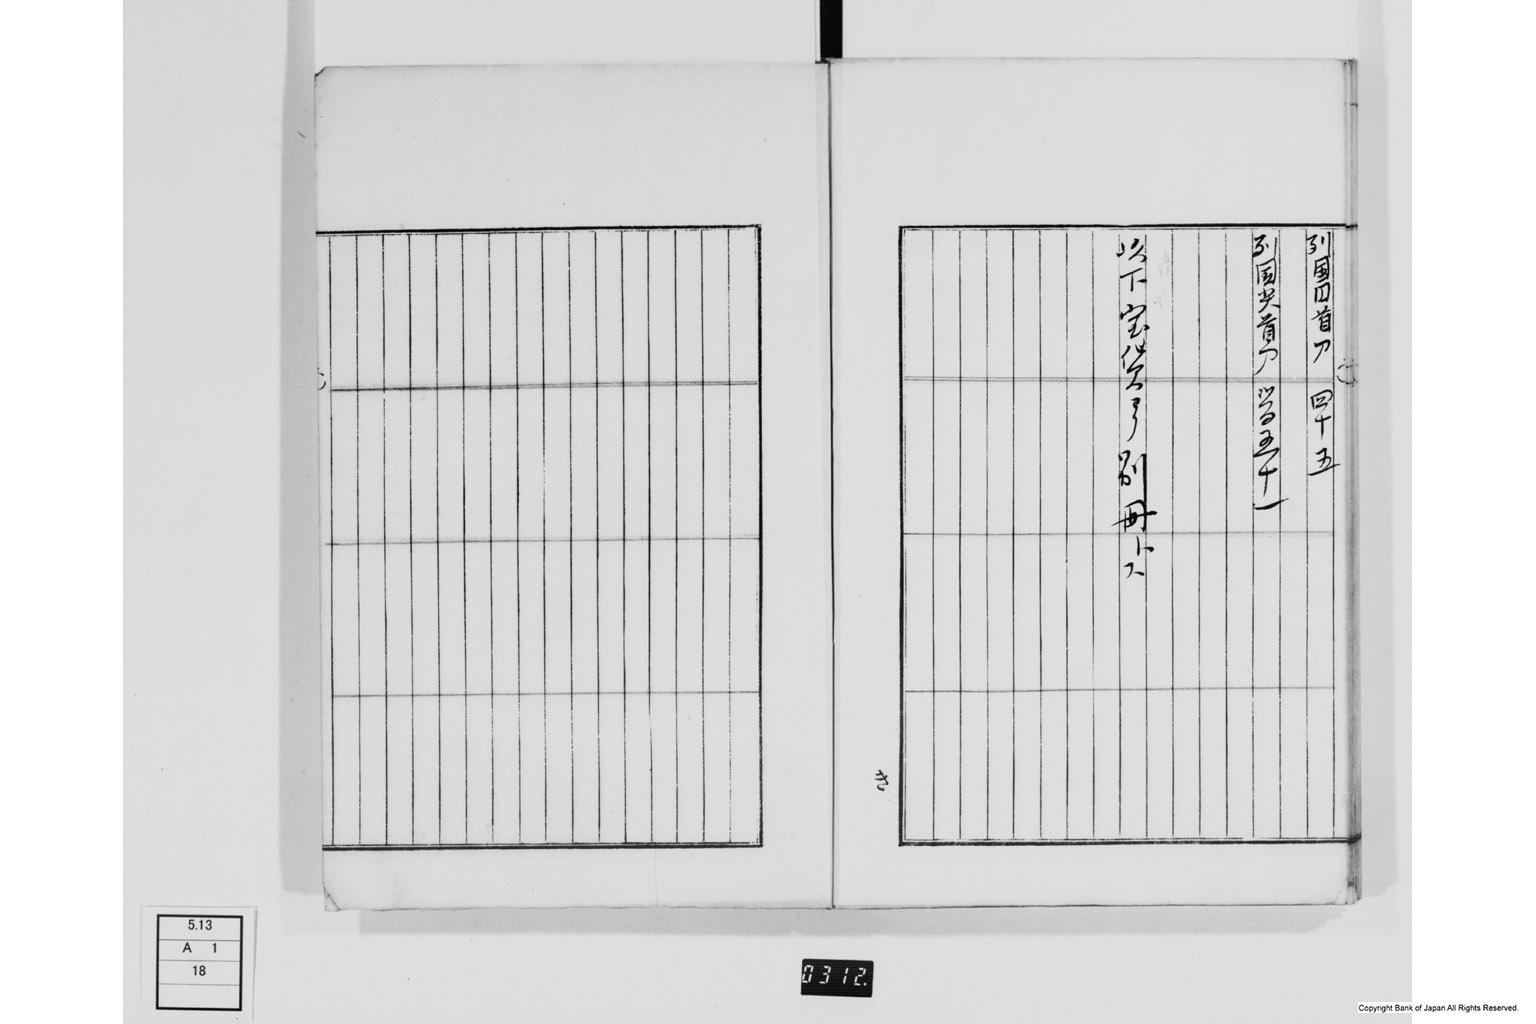 列国円首刀 四十五
列国尖首刀 当五十一
以下宝貨ヨリ別冊トス
き
5.13
A 1
18
0312.
Copyright Bank of Japan All Rights Reserved.